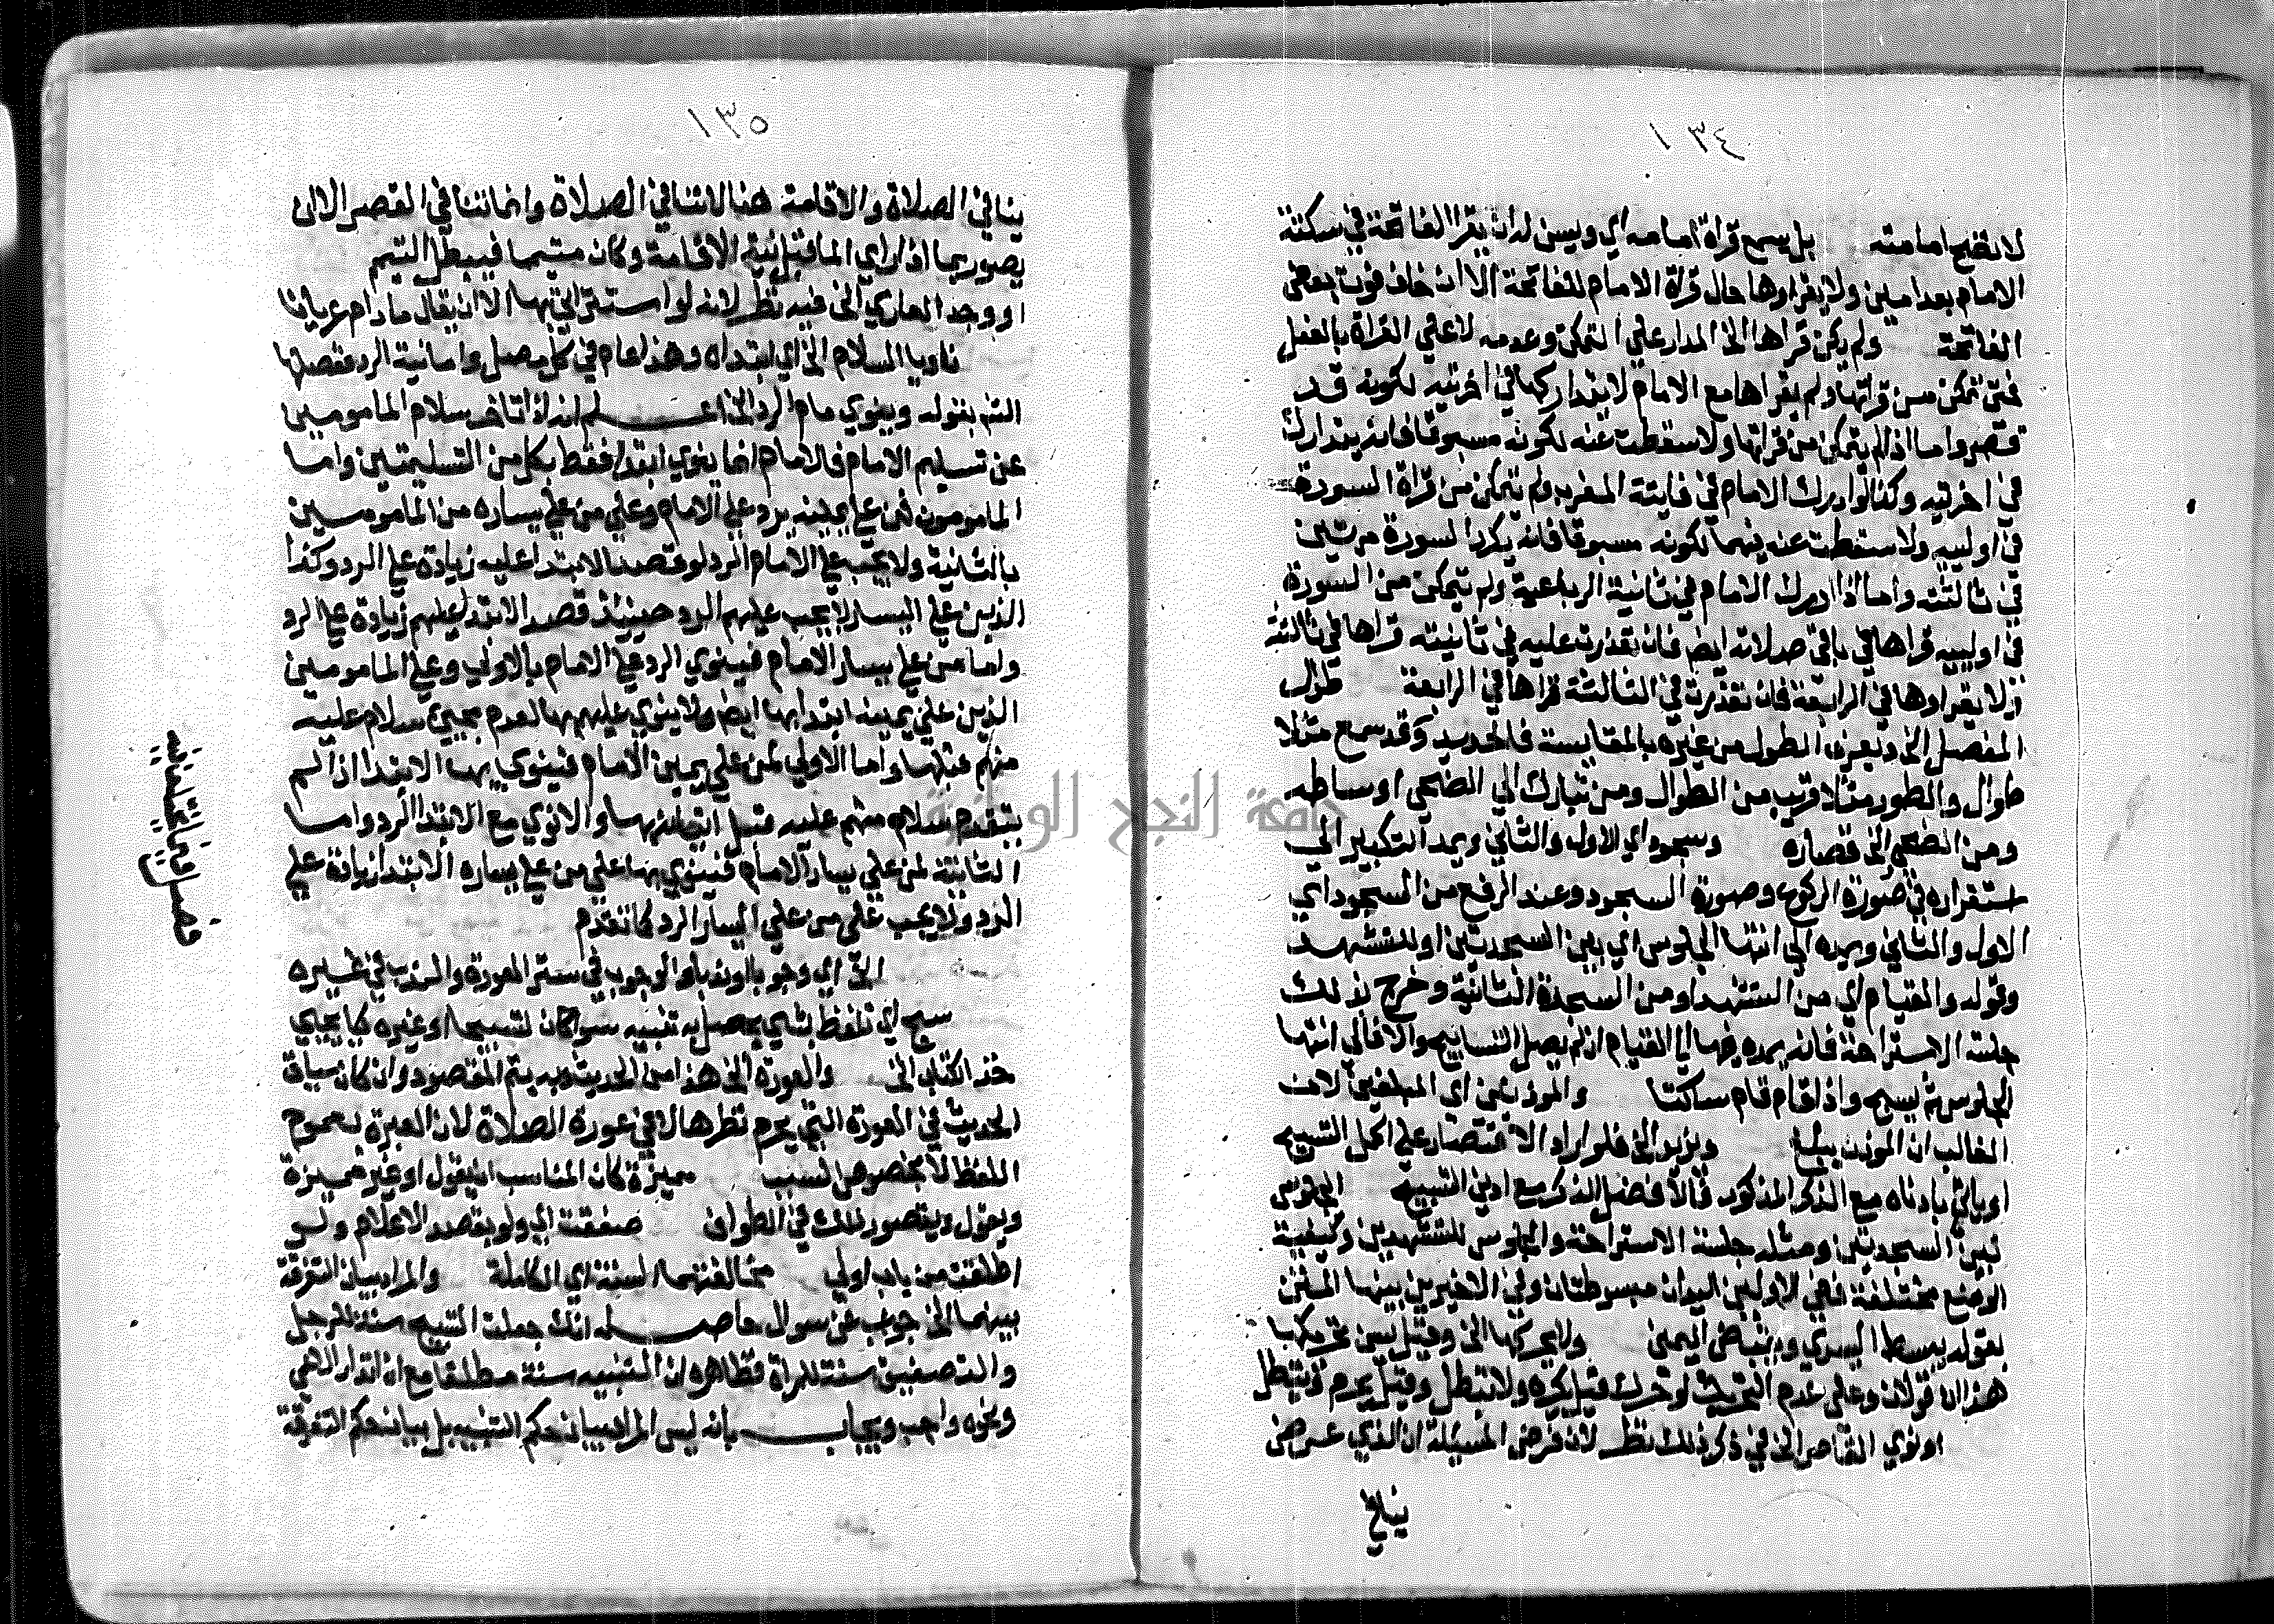 ١٣٤
لا تصح امامته بل يسمع قراة امامه اي ويسن له ان يقرا الفاتحة في سكتة
الامام بعد امين ولا يقراوها حال قراة الامام للفاتحة الا ان خاف فوت بعض
الفاتحة ولم يكن قراها الخ المدار علي التمكن وعدمه لا علي القراة بالفعل
فمتي تمكن من قراتها ولم يقراها مع الامام لا يتداركها في اخرتيه لكونه قد
قصر واما اذا لم يتمكن من قراتها ولا سقطت عنه لكونه مسبوقا فانه يتدارك
في اخرتيه وكذا لو ادرك الامام في ثانية المغرب ولم يتمكن من قراة السورة
في اولييه ولا سقطت عنه فيهما لكونه مسبوقا فانه يكرر السورة مرتين
في ثالثته واما اذا ادرك الامام في ثانية الرباعية ولم يتمكن من السورة
في اولييه قراها في باقي صلاته ايضا فان تعذرت عليه في ثانيته قراها في ثالثته
ولا يقراوها في الرابعة فان تعذرت في الثالثة قراها في الرابعة طوال
المفصل الخ ويعرف الطول من غيره بالمقايسة فالحديد وقد سمع مثلا
طوال والطور مثلا قريب من الطوال ومن تبارك الي الضحي اوساطه
ومن الضحي الخ قصاره وسجود اي الاول والثاني ويمد التكبير الي
استقراره في صورة الركوع وصورة السجود وعند الرفع من السجود اي
الاول والثاني ويمده الي انتها الجلوس اي بين السجدتين او للتشهد
وقوله والقيام اي من التشهد او من السجدة الثانية وخرج بذلك
جلسة الاستراحة فانه يمده منها الي القيام ان لم يصل التسابيح والا فالي انتها
الجلوس ثم يسبح واذا قام قام ساكتا والموذنين اي المبلغين لان
الغالب ان الموذن يبلغ ويزيد الخ فلو اراد الاقتصار علي اكمل التسبيح
او ياتي بادناه مع الذكر المذكور فالافضل الذكر مع ادني التسبيح الجلوس
بين السجدتين ومثله جلسة الاستراحة والجلوس للتشهدين وكيفية
الوضع مختلفة ففي الاولين اليدان مبسوطتان وفي الاخيرين بينها المتن
بقوله يبسط اليسري ويقبض اليمني ولا يحركها الخ وقيل يسن تحريكها
هذان قولان وعلي عدم التحريك لو حرك قيل يكره ولا تبطل وقيل يحرم وتبطل
او نوي القاصر الخ في ذكر ذلك نظر لان فرض المسئلة ان الذي عرض
ينافي
١٣٥
ينافي الصلاة والاقامة هنا لا تنافي الصلاة وانما تنافي القصر الا ان
يصور بما اذا راي الما قبل نية الاقامة وكان متيمما فيبطل التيمم
او وجد العاري الخ فيه نظر لانه لو استتر الخ بها الا ان يقال ما دام عريانا
ناويا السلام الخ اي ابتداه وهذا عام في كل مصل واما نية الرد فقصلها
المتن بقوله وينوي مام الرد الخ اعلم انه اذا تاخر سلام المامومين
عن تسليم الامام فالامام انما ينوي ابتدا فقط بكل من التسليمتين واما
المامومون فمن علي يمينه يرد علي الامام وعلي من علي يساره من المامومين
بالثانية ولا يجب علي الامام الرد لو قصد الابتدا عليه زيادة علي الرد وكذا
الذين علي اليسار لا يجب عليهم الرد حينيذ قصد الابتدا عليهم زيادة علي الرد
واما من علي يسار الامام فينوي الرد علي الامام بالاولي وعلي المامومين
الذين علي يمينه ابتدا بها ايضا ولا ينوي عليهم بها لعدم مجيئ سلام عليه
منهم قبلها واما الاولي لمن علي يمين الامام فينوي بها الابتدا اذا لم
يتقدم سلام منهم عليه قبل اتيانه بها والا نوي مع الابتدا الرد واما
الثانية لمن علي يسار الامام فينوي بها علي من علي يساره الابتدا زيادة علي
الرد ولا يجب علي من علي اليسار الرد كما تقدم
الخ اي وجوبا او ندبا والوجوب في ستر العورة والندب في غيره
سبح اي تلفظ بشي يحصل به تنبيه سوا كان تسبيحا او غيره كيا يحيي
خذ الكتاب الخ والعورة الخ هذا من الحديث وبه يتم المقصود وان كان سياق
الحديث في العورة التي يحرم نظرها لا في عورة الصلاة لان العبرة بعموم
اللفظ لا بخصوص السبب مميزة كان المناسب ان يقول او غير مميزة
ويقول ويتصور ذلك في الطواف صفقت اي ولو بقصد الاعلام ولو
اطلقت من باب اولي مخالفتهما لسنة اي الكاملة والمراد بيان التفرقة
بينهما الخ جواب عن سوال حاصله انك جعلت التسبيح سنة للرجل
والتصفيق سنة للمراة فظاهره ان التنبيه سنة مطلقا مع ان انذار الاعمي
ونحوه واجب ويجاب بانه ليس المراد بيان حكم التنبيه بل بيان حكم التفرقة